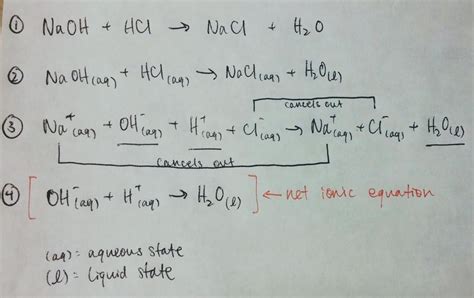 ① NaOH + HCl → NaCl + H₂O
② NaOH(aq) + HCl(aq) → NaCl(aq) + H₂O(l)
cancels out
③ Na⁺(aq) + OH⁻(aq) + H⁺(aq) + Cl⁻(aq) → Na⁺(aq) + Cl⁻(aq) + H₂O(l)
cancels out
④ [OH⁻(aq) + H⁺(aq) → H₂O(l)] ← net ionic equation
(aq) = aqueous state
(l) = liquid state